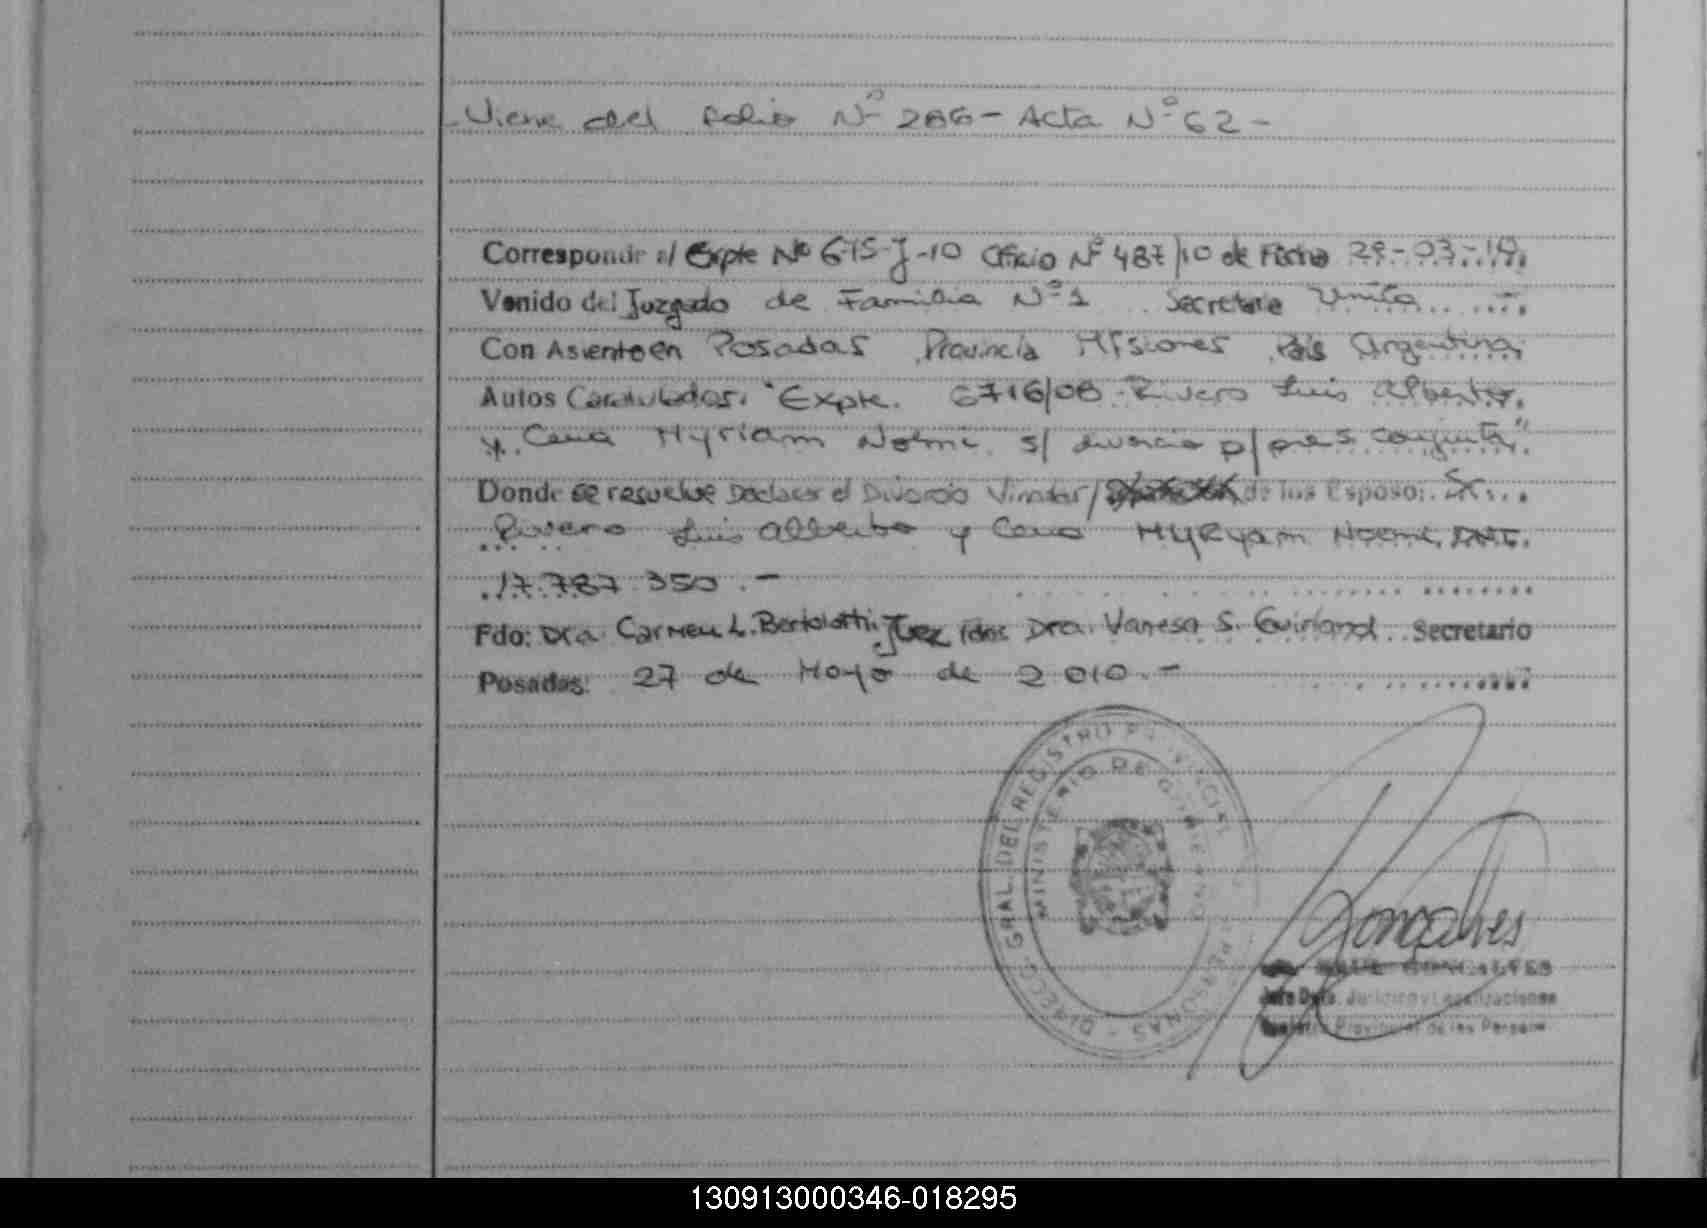 Viene del folio Nº 286 - Acta Nº 62 -
Corresponde s/ Expte Nº 615-J-10 Oficio Nº 487/10 de Fecha 29-03-10.
Venido del Juzgado de Familia Nº 1 Secretaria Unica
Con Asiento en Posadas Provincia Misiones Pais Argentina,
Autos Caratulados: "Expte. 6716/08 Rivero Luis Alberto
y Cena Myriam Noemi s/ divorcio p/ pres conjunta"
Donde se resuelve Declarar el Divorcio Vincular/ de los Esposo: Sr...
Rivero Luis Alberto y Cena MyRyam Noemi, DNI.
17.787.350.-
Fdo: Dra. Carmen L. Bertolotti Juez Dra. Vanesa S. Guirland Secretario
Posadas: 27 de Mayo de 2010.-
DIRECC. GRAL. DEL REGISTRO PROVINCIAL DE LAS PERSONAS -
MINISTERIO DE GOBIERNO
Gonçalves
RAUL GONCALVES
Jefe Dpto. Juridico y Legalizaciones
Registro Provincial de las Personas
130913000346-018295